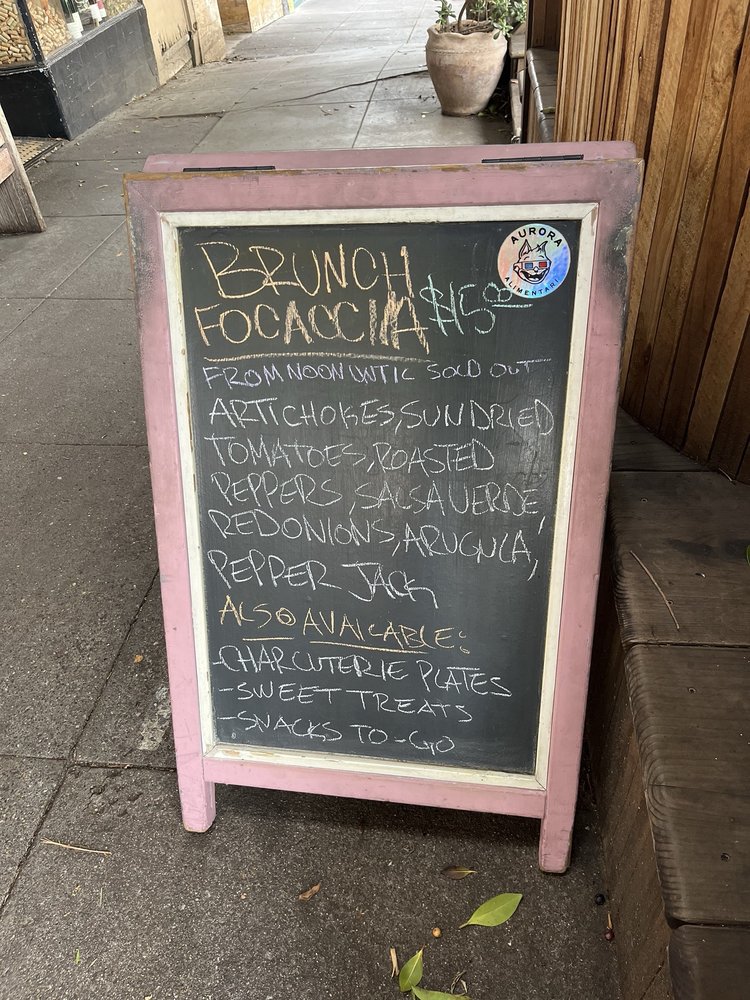 BRUNCH
FOCACCIA $15.00
FROM NOON UNTIL SOLD OUT
ARTICHOKES, SUNDRIED
TOMATOES, ROASTED
PEPPERS, SALSA VERDE,
RED ONIONS, ARUGULA,
PEPPER JACK
ALSO AVAILABLE:
-CHARCUTERIE PLATES
-SWEET TREATS
-SNACKS TO-GO
AURORA
ALIMENTARI